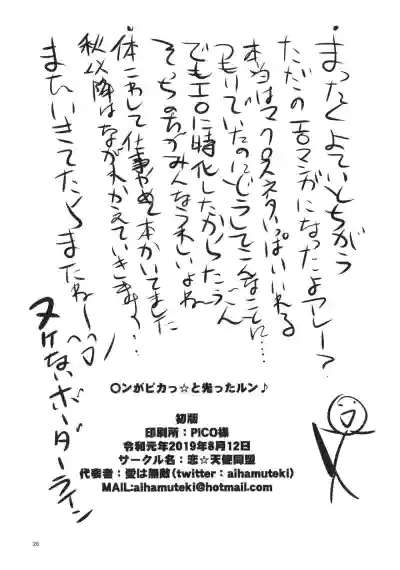 まったくよていとちがう
ただのエロマンガになったよアレー?
本当はマクロスネタいっぱいいれる
つもりでいたのにどうしてこんなことに…
でもエロに特化したからたぶん
そっちの方がみんなうれしいよね
体こわして仕事やめて本かいてました
秋以降はながれかえていきます〜!
またいきてたらまたね〜
ヌケないボーダーライン
〇ンがピカっ☆と光ったルン♪
初版
印刷所:PICO様
令和元年2019年8月12日
サークル名:恋☆天使同盟
代表者:愛は無敵(twitter:aihamuteki)
MAIL:aihamuteki@hotmail.com
26